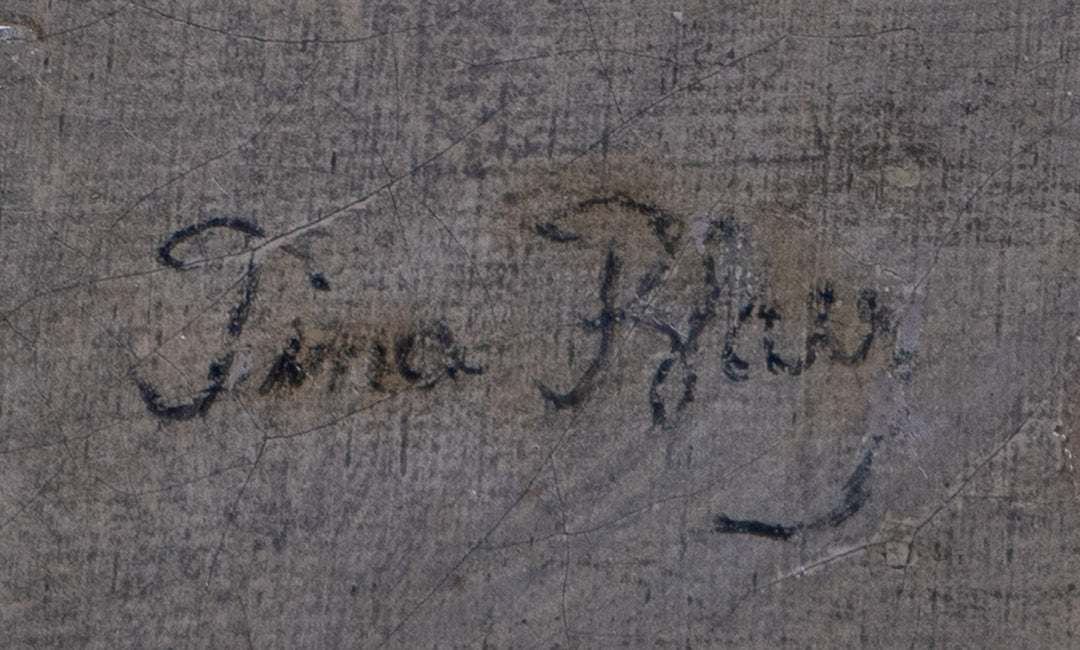 Tina Blau